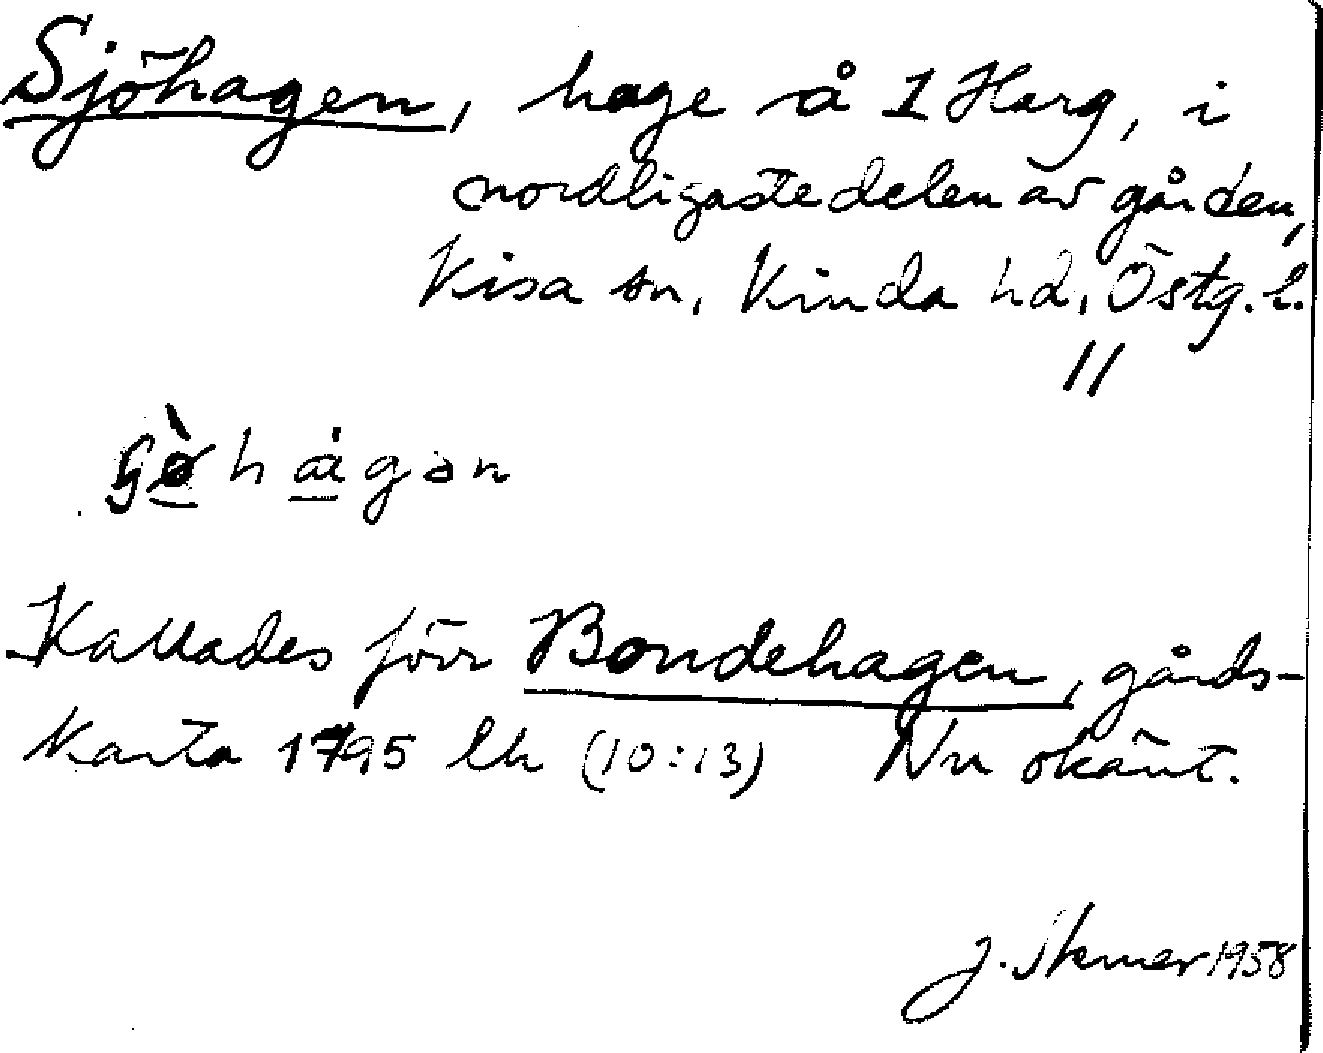 Sjöhagen, hage å 1 Harg, i
nordligaste delen av gården,
Kisa sn, Kinda hd, Östg. l.
"
hågən
Kallades förr Bondehagen, gårds-
karta 1795 lk (10:13) Nu okänt.
J. 1958